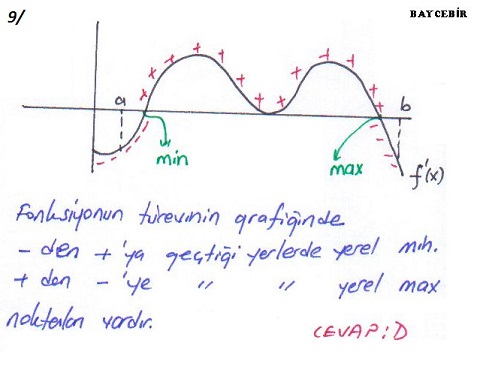 9/
BAYCEBİR
a
b
min
max
f'(x)
Fonksiyonun türevinin grafiğinde
- den +'ya geçtiği yerlerde yerel min.
+ dan - 'ye " " yerel max
noktaları vardır.
CEVAP: D